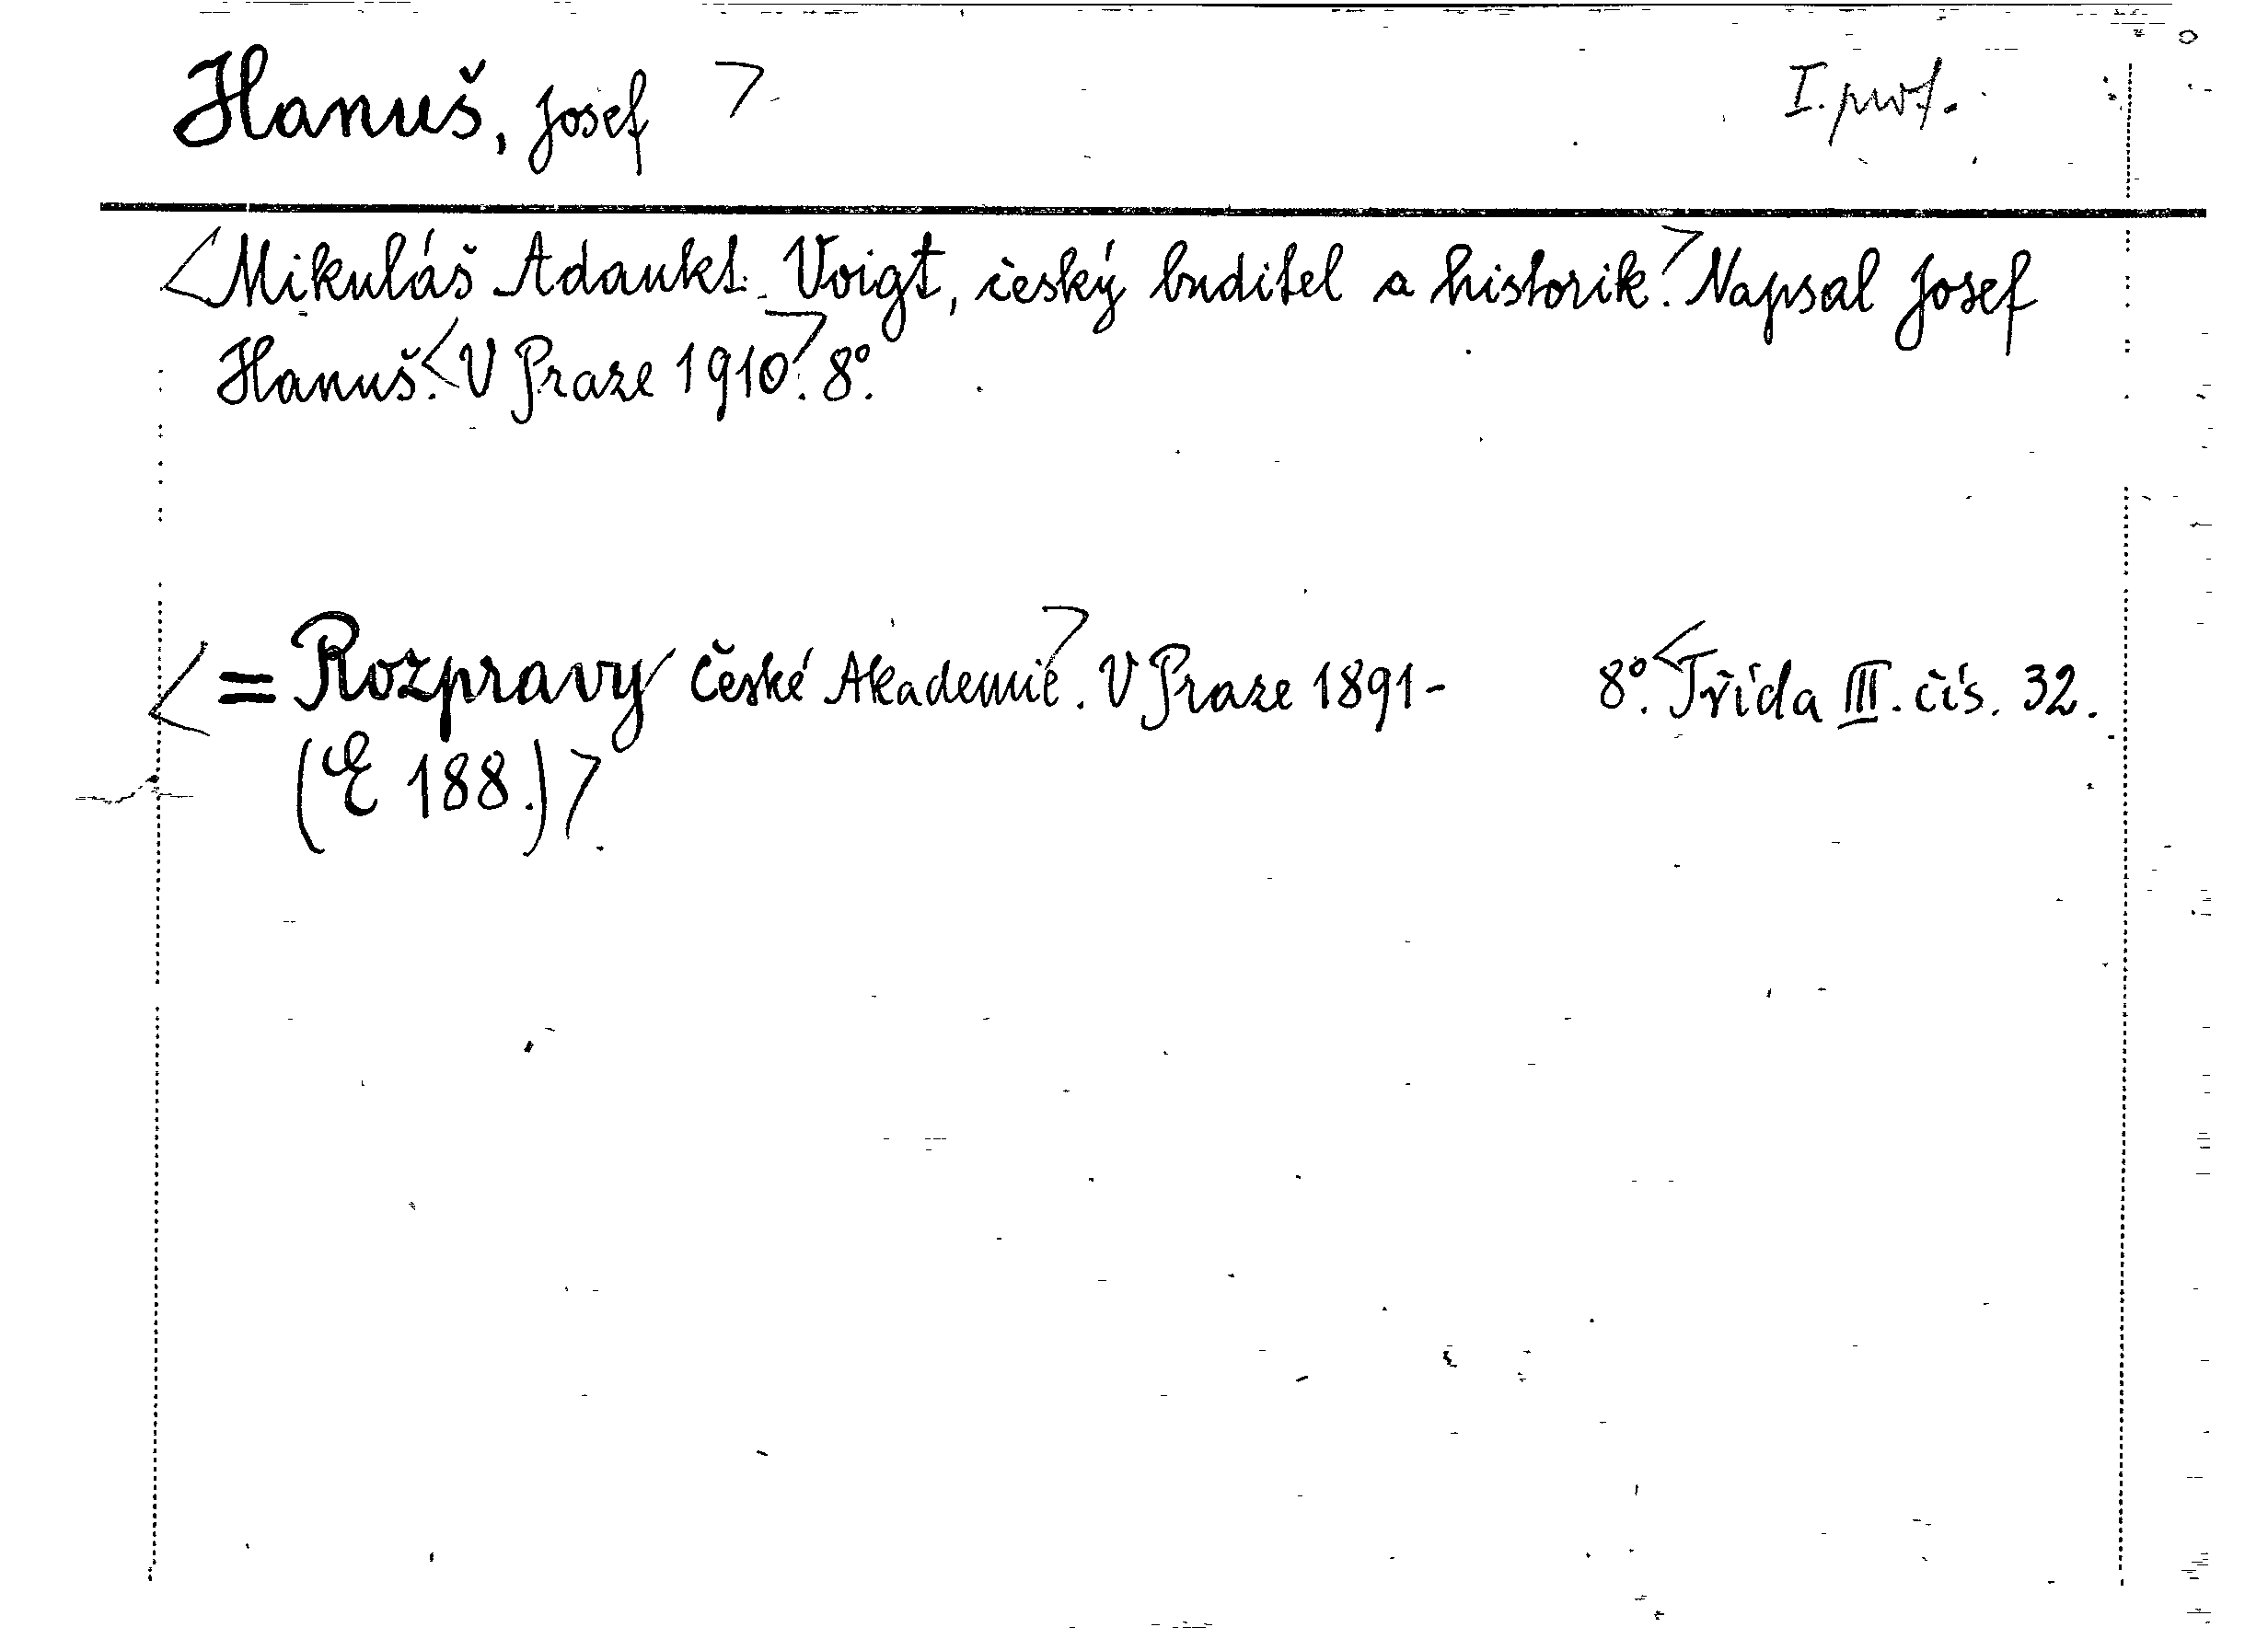 Hanuš, Josef > I. prof.
<Mikuláš Adaukt. Voigt, český buditel a historik.> Napsal Josef
Hanuš. <V Praze 1910>. 8°.
<= Rozpravy České Akademie>. V Praze 1891- 8°. <Třída III. čís. 32.
(E 188.)>